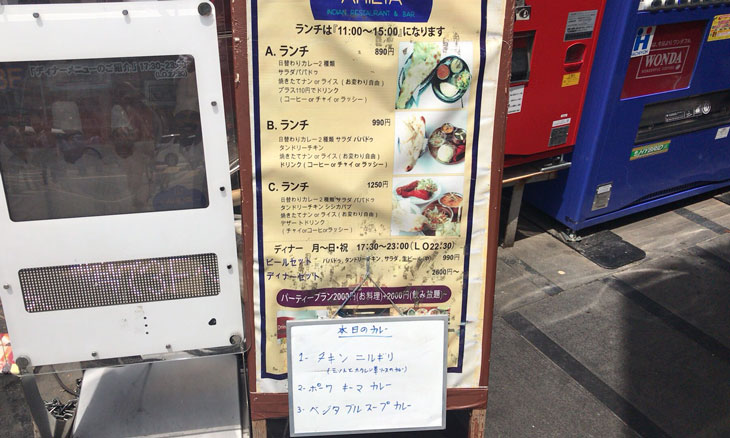 INDIAN RESTAURANT & BAR
ランチは『11:00〜15:00』になります
A. ランチ 890円
日替わりカレー2種類
サラダパパドゥ
焼きたてナン or ライス (お変わり自由)
プラス110円でドリンク
(コーヒー or チャイ or ラッシー)
B. ランチ 990円
日替わりカレー2種類 サラダ パパドゥ
タンドリーチキン
焼きたてナン or ライス (お変わり自由)
ドリンク (コーヒー or チャイ or ラッシー)
C. ランチ 1250円
日替わりカレー2種類 サラダ パパドゥ
タンドリーチキン シシカバブ
焼きたてナン or ライス (お変わり自由)
デザート ドリンク
(チャイorコーヒーorラッシー)
ディナー 月〜日・祝 17:30〜23:00(L O22:30)
ビールセット パパドゥ、タンドリーチキン、サラダ、生ビール 990円
ディナーセット 2600円〜
パーティープラン2000円(お料理)+2000円(飲み放題)〜
本日のカレー
1- チキン ニルギリ
2- ポーク キーマ カレー
3- ベジタブルスープ カレー
『ディナーメニューのご紹介』17:30-23:00
WONDA